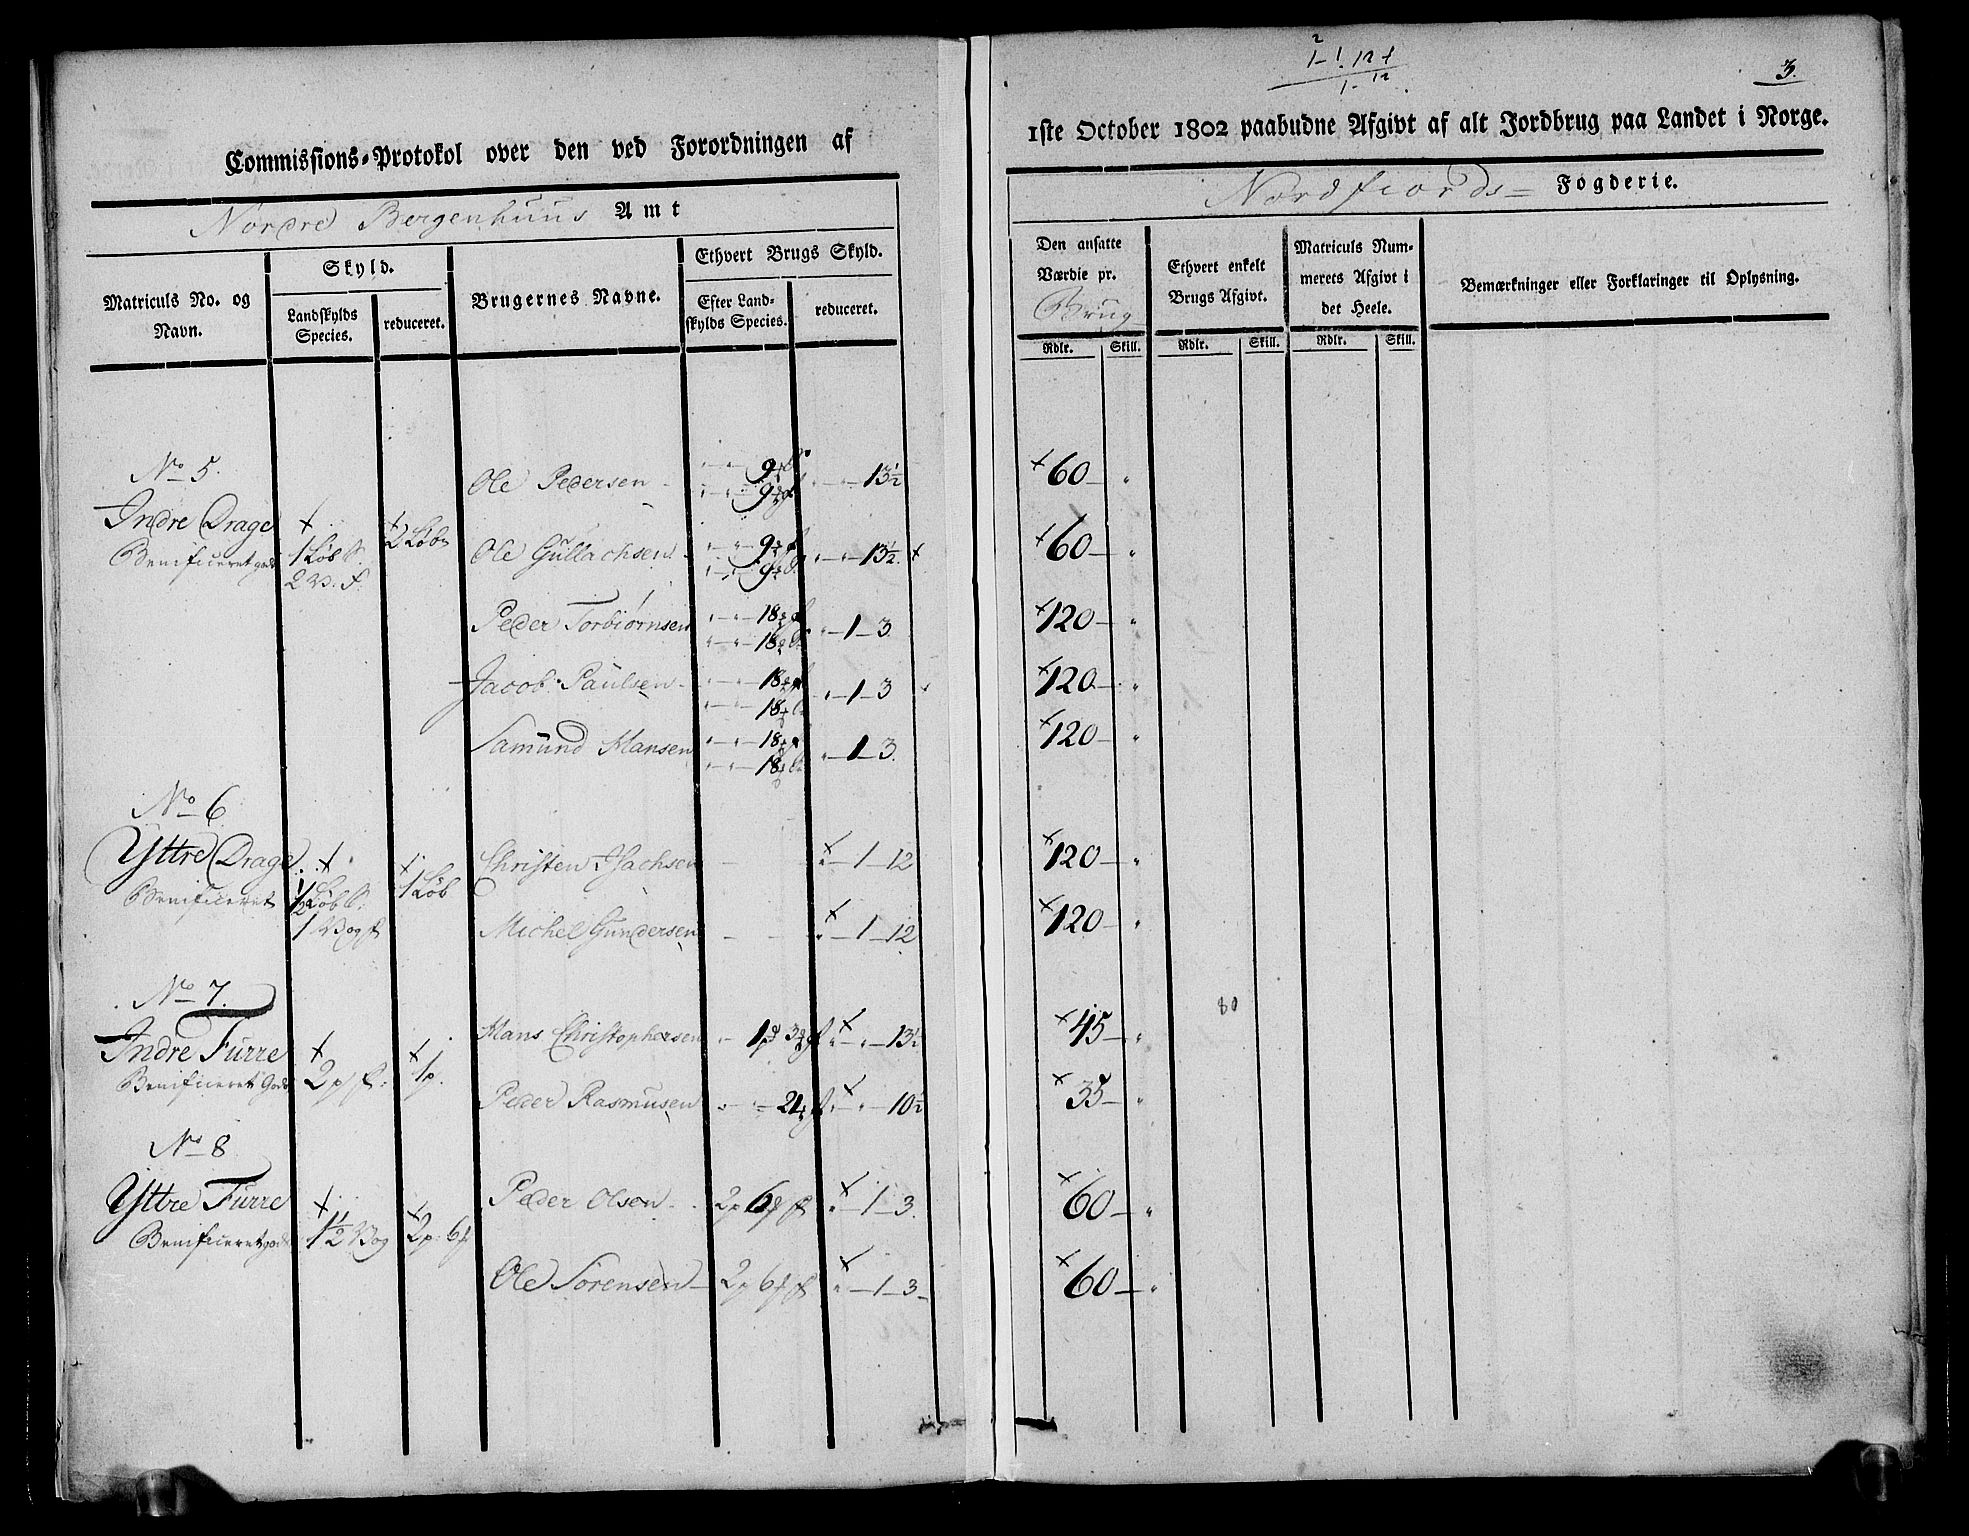 3.
Commissions-Protokol over den ved Forordningen af
1ste October 1802 paabudne Afgivt af alt Jordbrug paa Landet i Norge.
Nordre Bergenhuus Amt
Nordfiords= Fogderie.
Matriculs No. og Navn.
Skyld.
Landskylds Species.
reduceret.
Brugernes Navne.
Ethvert Brugs Skyld.
Efter Landskylds Species.
reduceret.
Den ansatte Værdie pr. Brug
Ethvert enkelt Brugs Afgivt.
Matriculs Nummerets Afgivt i det Heele.
Bemærkninger eller Forklaringer til Oplysning.
Rdlr. Skill. Rdlr. Skill. Rdlr. Skill.
No 5.
Indre Drage
Benificeret gods
2 Løb
Ole Pedersen 13½ 60
Ole Gullachsen 13½ 60
Peder Torbiørnsen 1-3 120
Jacob Paulsen 1-3 120
Samund Hansen 1-3 120
No 6
Yttre Drage
Benificeret
1 Løb
Christen Isachsen 1-12 120
Michel Gundersen 1-12 120
No 7.
Indre Furre
Benificeret Gods
1p.
Hans Christophersen 13½ 45
80
Peder Rasmusen 10½ 35
No 8
Yttre Furre
Benificeret gods
1½ Vog
Peder Olsen 1-3. 60
Ole Sørensen 1-3 60